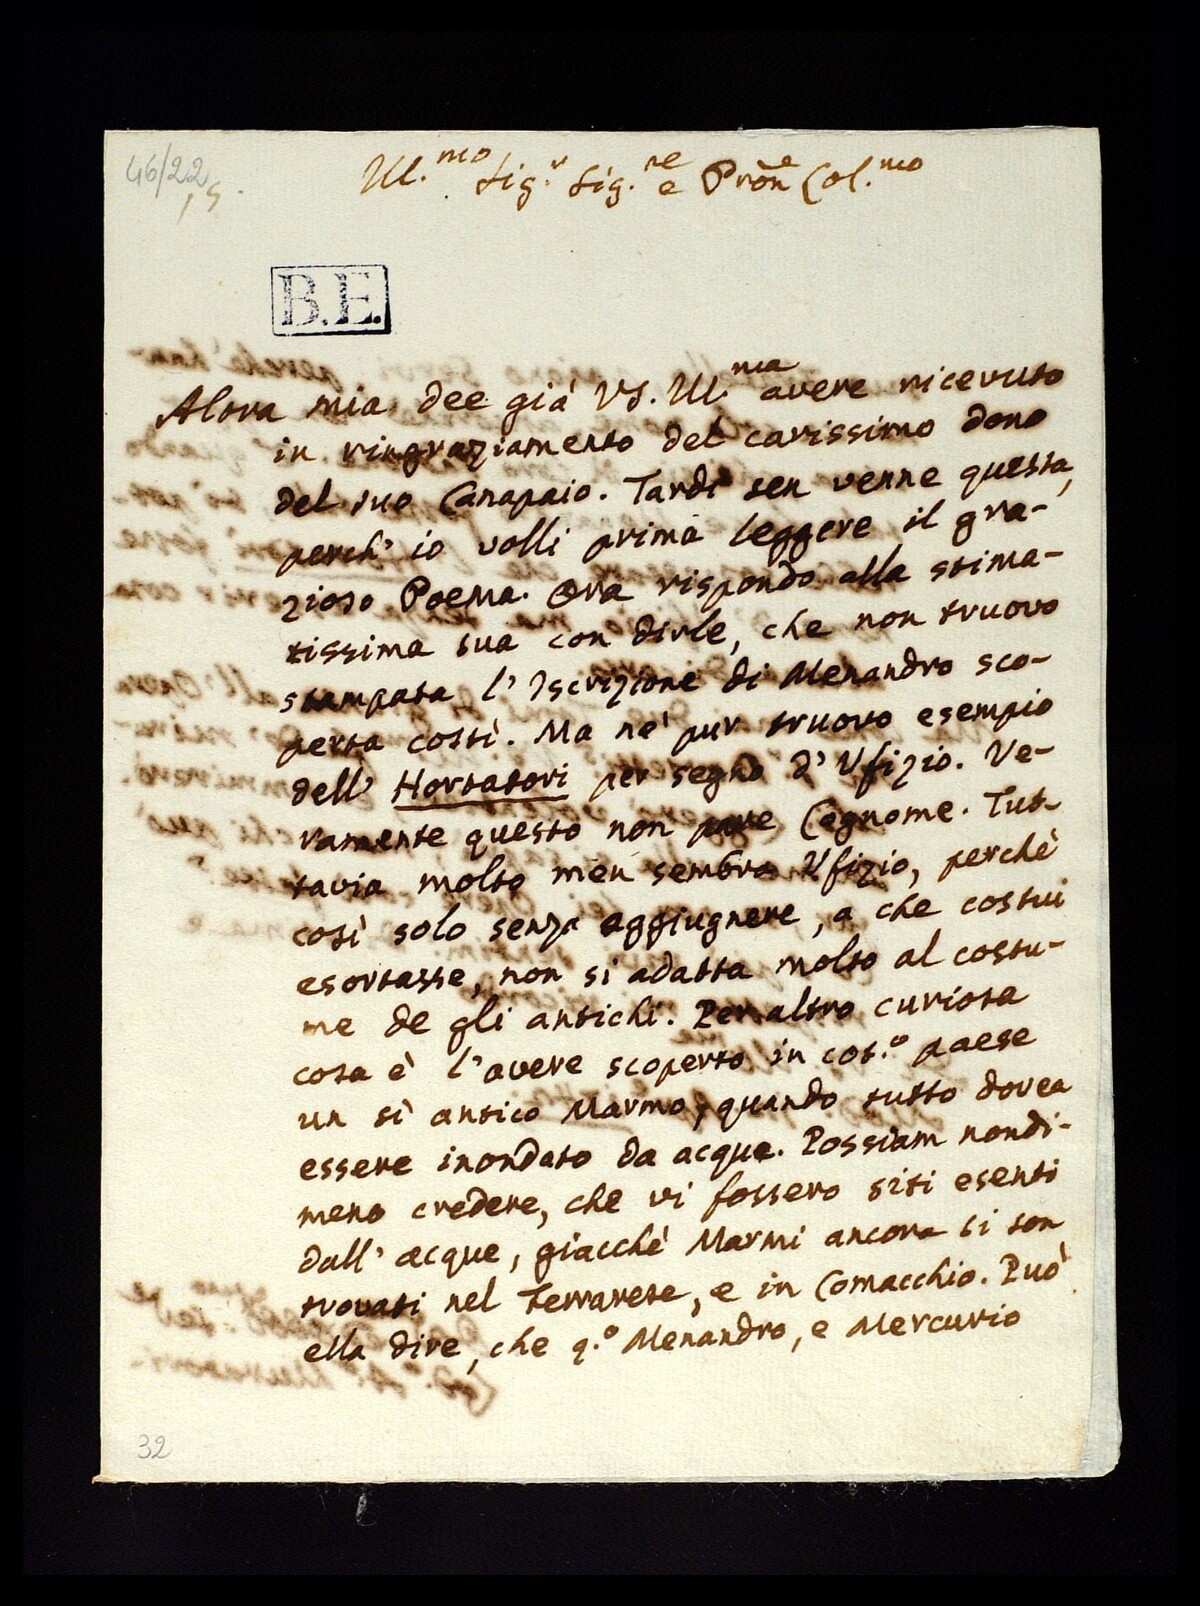 46/22
15.
Ill.mo Sig.r Sig.re e Pron.e Col.mo
B.E.
Alora mia dee già VS. Ill.ma avere ricevuto
in ringraziamento del carissimo dono
del suo Canapaio. Tardi sen venne questa,
perch' io volli prima leggere il gra-
zioso Poema. Ora rispondo alla stima-
tissima sua con dirle, che non truovo
stampata l' Iscrizione di Menandro sco-
perta costì. Ma nè pur truovo esempio
dell' Hortatori per segno d' Ufizio. Ve-
ramente questo non pare Cognome. Tut-
tavia molto men sembra Ufizio, perchè
così solo senza aggiugnere, a che costui
esortasse, non si adatta molto al costu-
me de gli antichi. Per altro curiosa
cosa è l'avere scoperto in cot.o paese
un sì antico Marmo, quando tutto dovea
essere inondato da acque. Possiam nondi-
meno credere, che vi fossero siti esenti
dall' acque, giacchè Marmi ancora si son
trovati nel Ferrarese, e in Comacchio. Può
ella dire, che q.o Menandro, e Mercurio
32